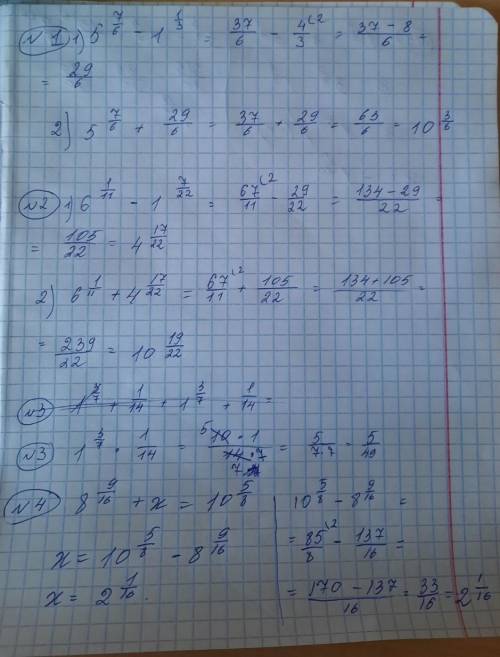 №1 1) 5 7/6 - 1 1/3 = 37/6 - 4/3 (2 = 37 - 8/6 =
= 29/6
2) 5 7/6 + 29/6 = 37/6 + 29/6 = 63/6 = 10 3/6
№2 1) 6 1/11 - 1 7/22 = 67/11 (2 - 29/22 = 134 - 29/22 =
= 105/22 = 4 17/22
2) 6 1/11 + 4 17/22 = 67/11 (2 + 105/22 = 134 + 105/22 =
= 239/22 = 10 19/22
№3 1 3/7 + 1/14 + 1 3/7 + 1/14 =
№3 1 3/7 · 1/14 = 5 10 · 1/14 · 7 7 = 5/7·7 = 5/49
№4 8 9/16 + x = 10 5/8
x = 10 5/8 - 8 9/16
x = 2 1/16.
10 5/8 - 8 9/16 =
= 85/8 (2 - 137/16 =
= 170 - 137/16 = 33/16 = 2 1/16